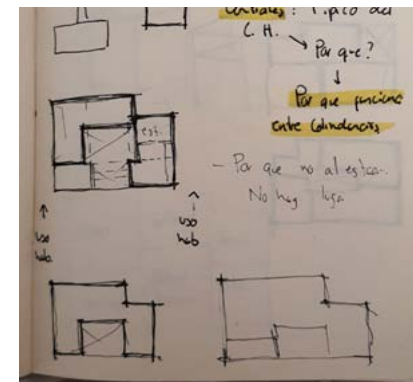 : Típico del
C.H.
Por que?
Por que funciona
entre colindencias
est.
- Por que no al
No hay
uso
hab.
uso
hab